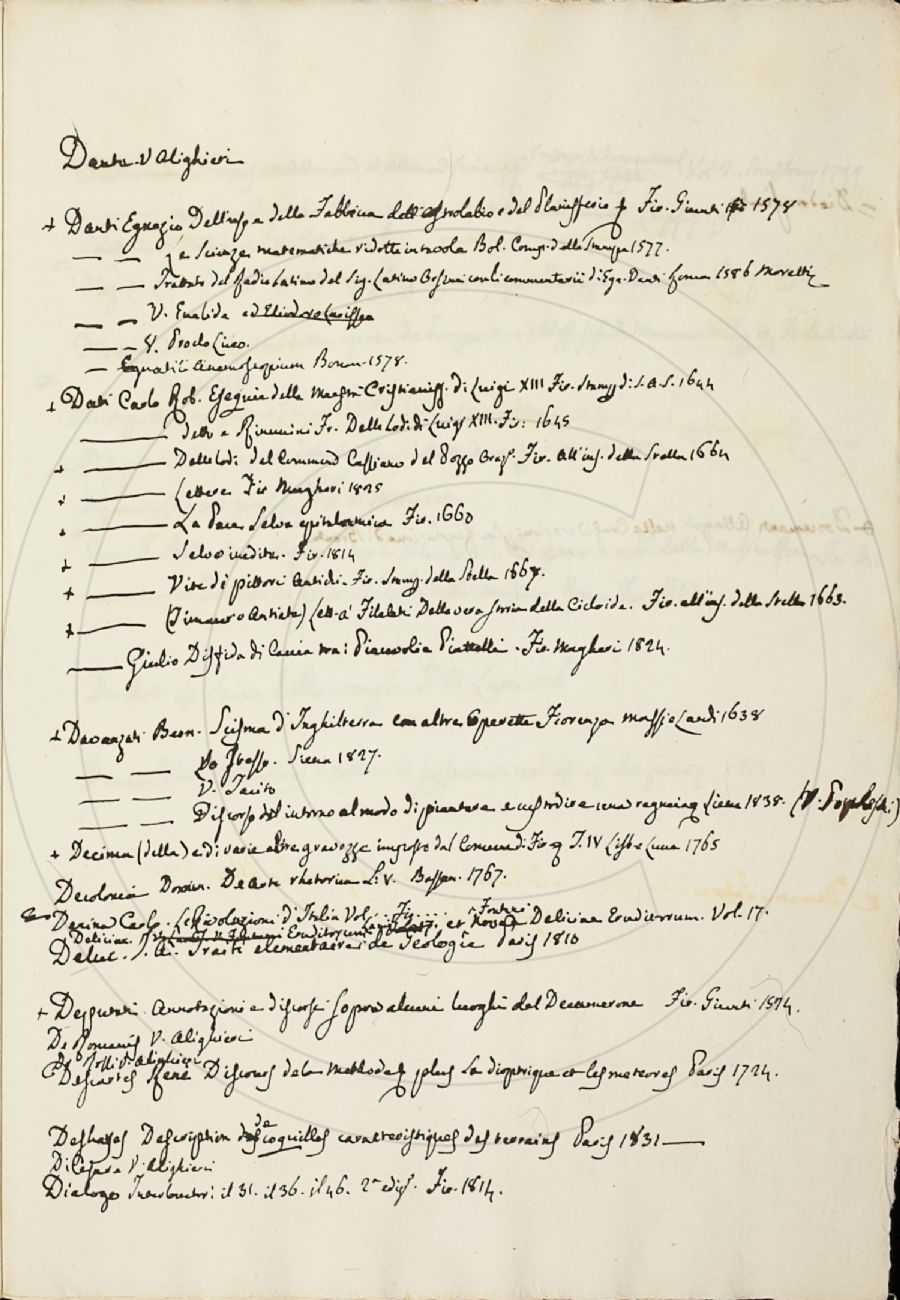 Dante V Alighieri
+ Danti Egnazio Dell'uso e della Fabbrica dell'Astrolabio e del Planisferio Fir. Giunti 1578
— — Le Scienze matematiche ridotte in tavola Bol. Comp. della Stampa 1577.
— — Trattato del Radio Latino del Sig. Latino Orsini con li commentarii di Egn. Danti Roma 1586 Moretti
— — V. Euclide ed Eliodoro Larisseo
— — V. Proclo Liceo.
— Egnatii Anemoscopium Bonon. 1578.
+ Dati Carlo Rob. Esequie della Maestà Cristianiss. di Luigi XIII Fir. Stamp. di S.A.S. 1644
—— detto e Rinuccini Fr. Delle lodi di Luigi XIII. Fir: 1645
+ —— Delle lodi del Commend Cassiano del Pozzo Oraz.e Fir. All'ins. della Stella 1664
+ —— Lettere Fir Magheri 1825
+ —— La Pace Selva epitalamica Fir. 1660
+ —— Selva inedita. Fir. 1814
+ —— Vite di pittori Antichi. Fir. Stamp. della Stella 1667.
+ —— (Timauro Antiate) Lett. a' Filaleti Della vera storia della Cicloide. Fir. all'ins. della Stella 1663.
—— Giulio Disfida di Caccia tra i Piacevoli e Piattelli. Fir. Magheri 1824.
+ Davanzati Bern. Scisma d'Inghilterra con altre Operette Fiorenza Massi e Landi 1638
— — Lo Stesso. Siena 1827.
— — V. Tacito
— — Discorso intorno al modo di piantare e custodire una ragnaia Lucca 1838.
+ Decima (della) e di varie altre gravezze imposte dal Comune di Fir. T. IV Lisb. e Lucca 1765
Decolonia Domin. De Arte rhetorica L. V. Bassan. 1767.
Denina Carlo. Le Rivoluzioni d'Italia Vol... Fir....
Deliciae Eruditorum et Novae Deliciae Eruditorum. Vol. 17.
Deluc. J. A. Traité elementaire de Geologie Paris 1810
+ Deputati Annotazioni e discorsi sopra alcuni luoghi del Decamerone Fir. Giunti 1574.
De Romanis V. Alighieri
De Rossi V. Alighieri
Descartes René Discours de la Methode plus La dioptrique et les meteores Paris 1724.
Deshayes Description de coquilles caracteristiques des terrains Paris 1831 —
Di Cesare V. Alighieri
Dialogo Interlocutori il 31. il 36. il 46. 2a ediz. Fir. 1814.